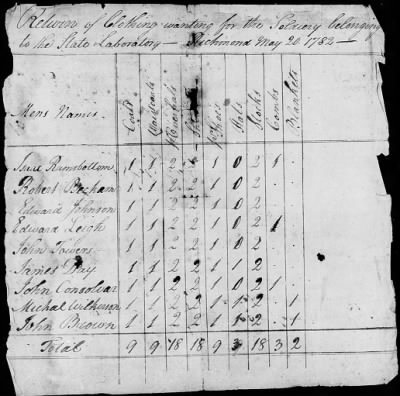 Return of Clothing wanting for the Soldiery belonging
to the State Laboratory — Richmond May 20 1782 —
Mens Names Coats Waistcoats Overhals Shirts Hats Stocks Combs Blankets
Ramsbottom 1 1 2 2 1 0 2 1
Robert Becham 1 1 2 2 1 0 2
Edward Johnson 1 1 2 2 1 0 2
Edward Leigh 1 1 2 2 1 0 2 1
John 1 1 2 2 1 0 2
James Day 1 1 2 2 1 1 2
John Consolvar 1 1 2 2 1 0 2 1
Michal Wilkerson 1 1 2 2 1 1 2 1
John Brown 1 1 2 2 1 1 2 1
Total 9 9 18 18 9 3 18 3 2